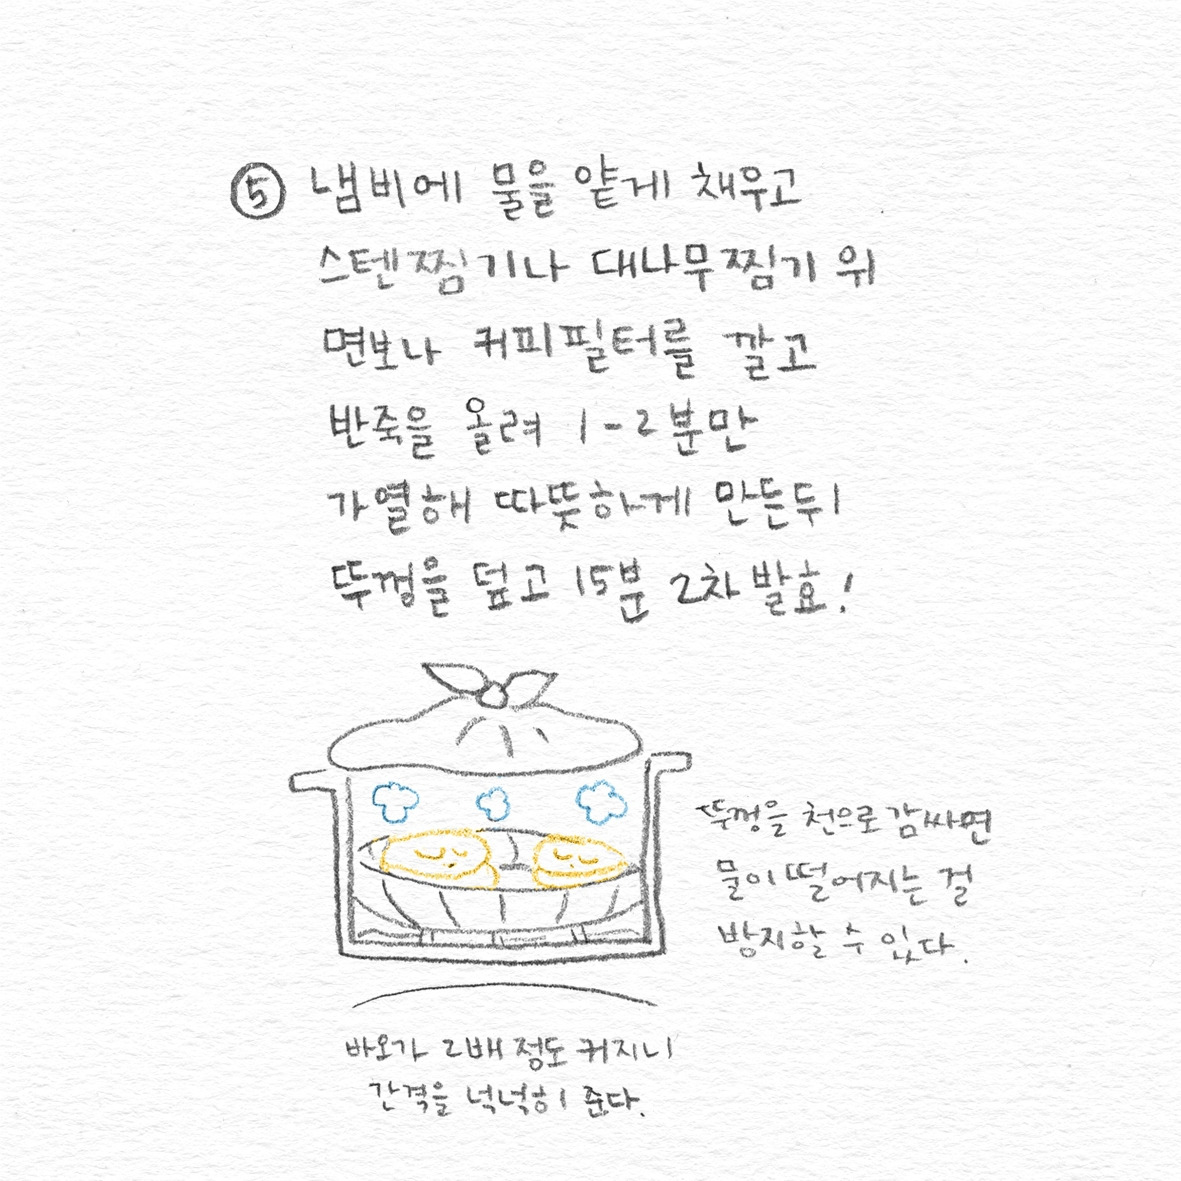 ⑤ 냄비에 물을 얕게 채우고
스텐찜기나 대나무찜기 위
면보나 커피필터를 깔고
반죽을 올려 1-2분만
가열해 따뜻하게 만든뒤
뚜껑을 덮고 15분 2차발효!
뚜껑을 천으로 감싸면
물이 떨어지는 걸
방지할 수 있다.
바오가 2배 정도 커지니
간격을 넉넉히 준다.